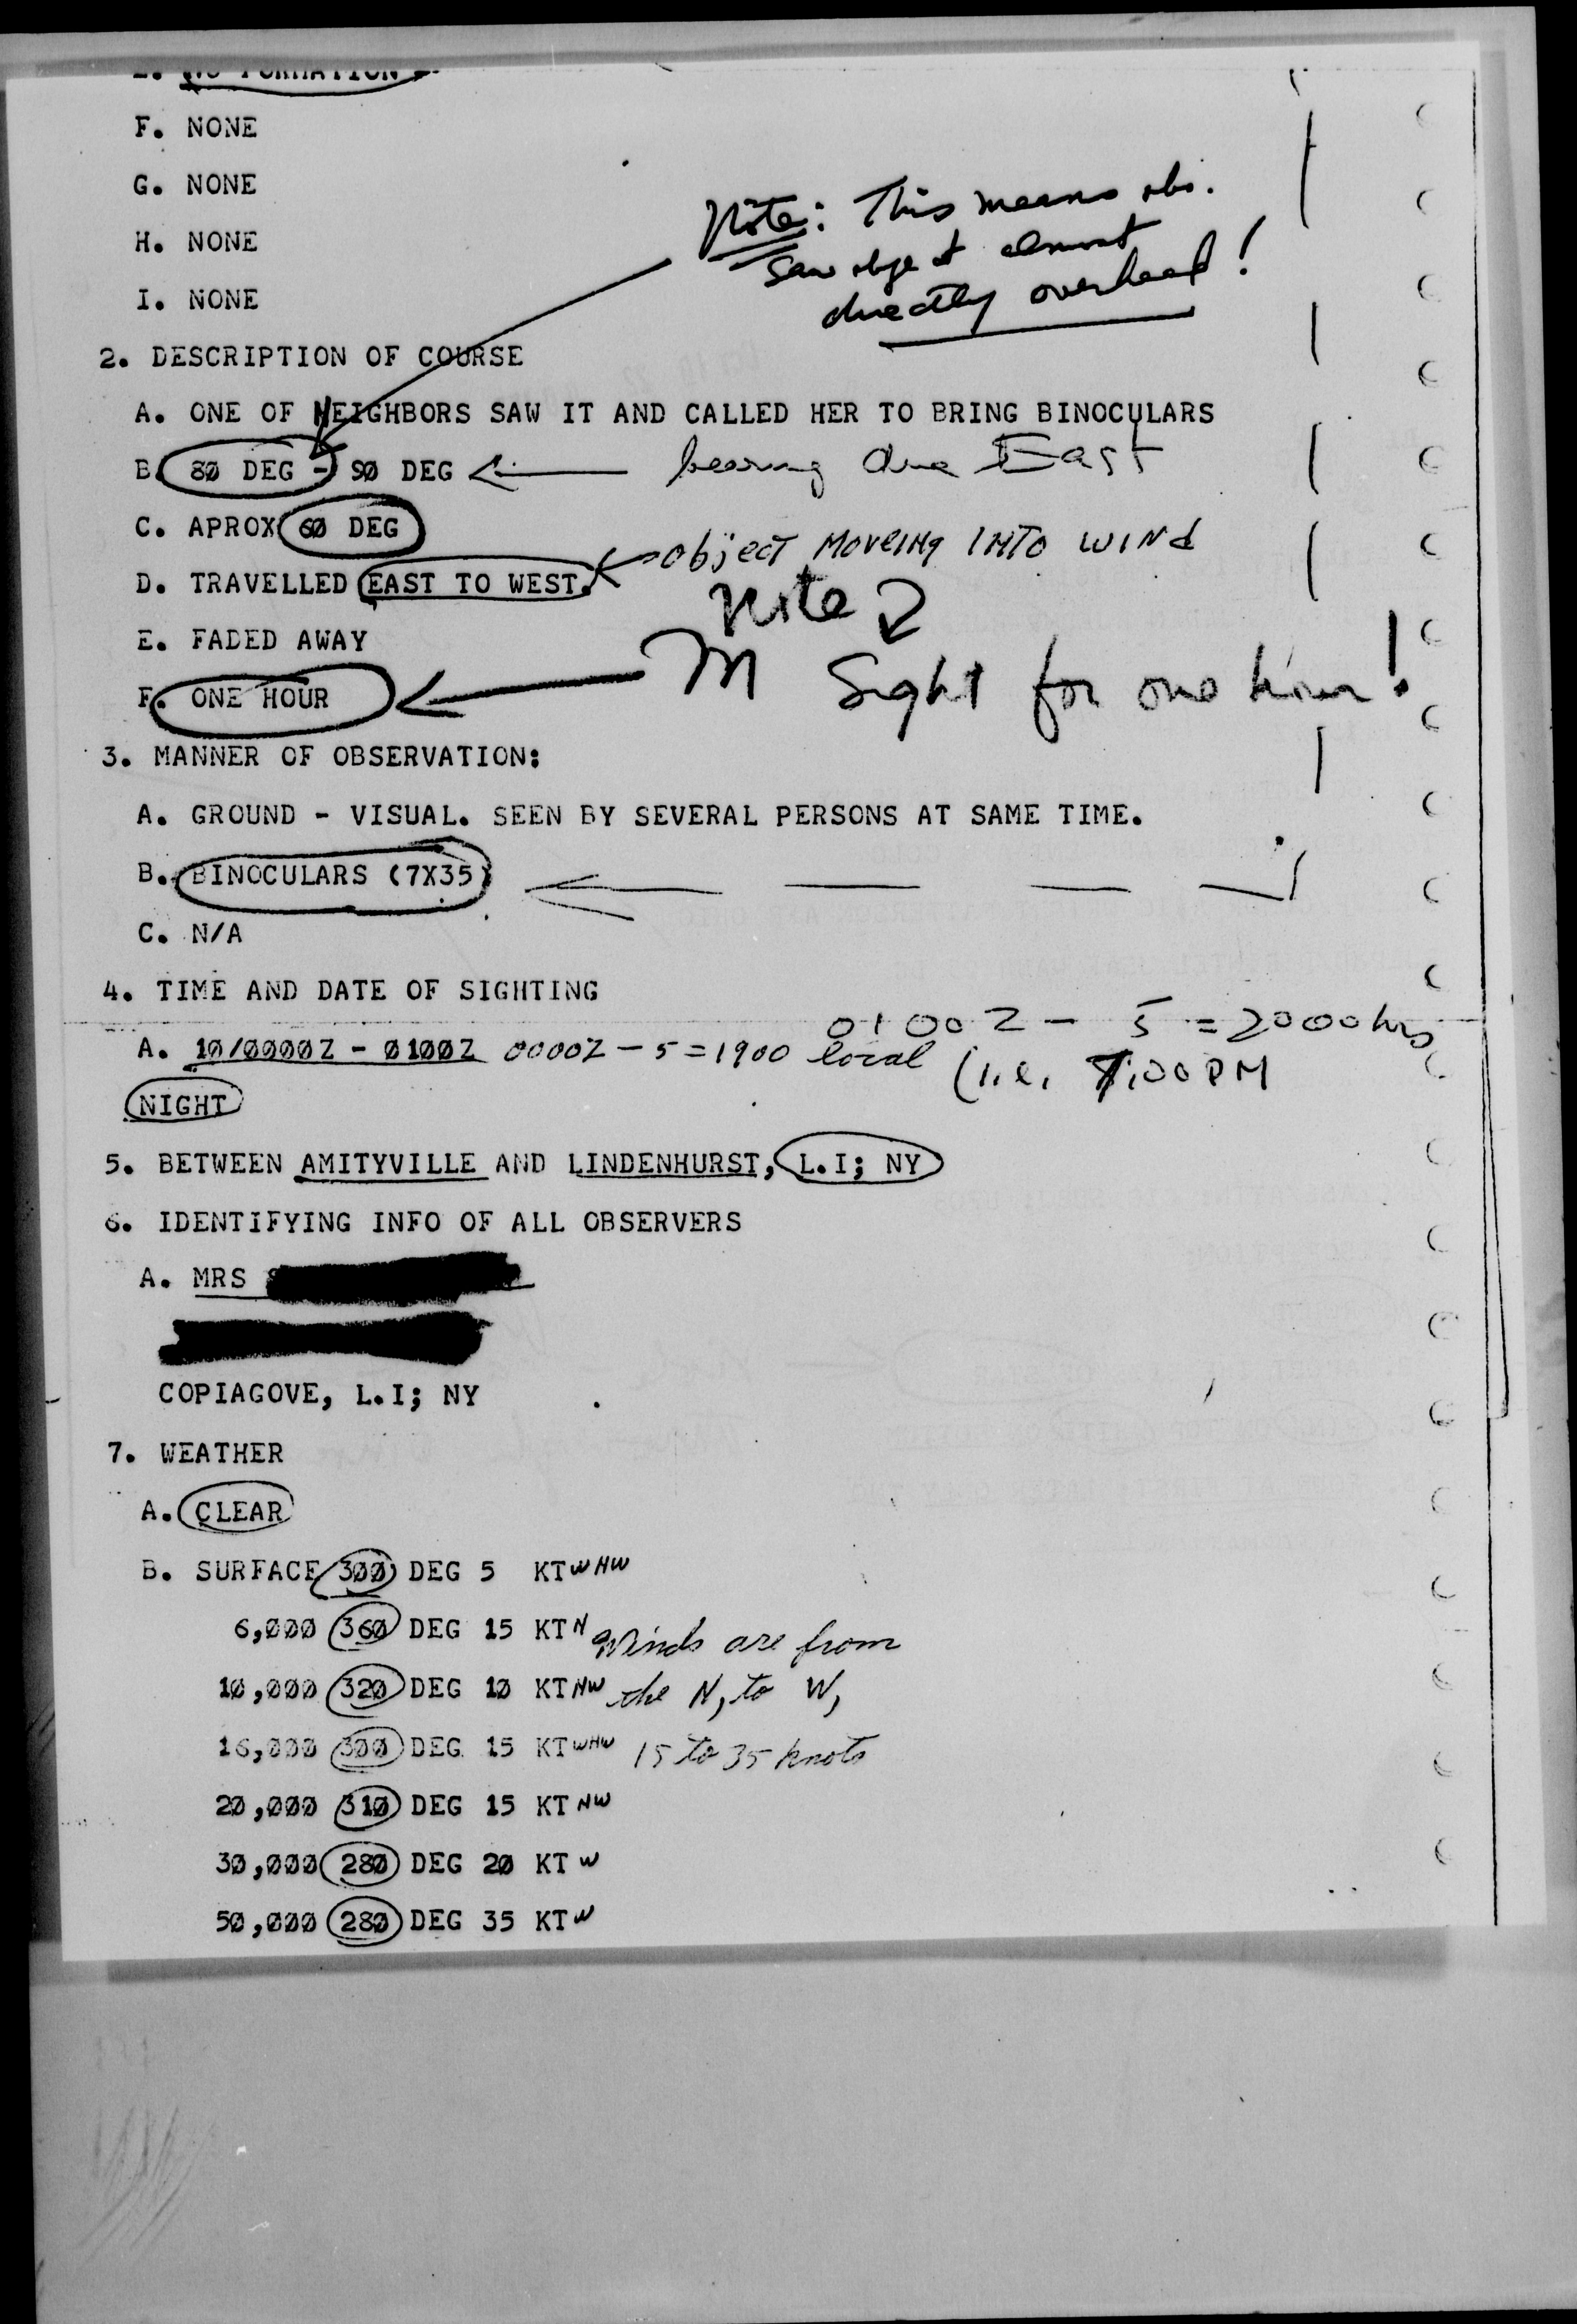 E. NO FORMATION
F. NONE
G. NONE
H. NONE
I. NONE
Note: This means obs.
saw object almost
directly overhead!
2. DESCRIPTION OF COURSE
A. ONE OF NEIGHBORS SAW IT AND CALLED HER TO BRING BINOCULARS
B. 80 DEG - 90 DEG bearing due East
C. APROX 60 DEG
object moveing into wind
D. TRAVELLED EAST TO WEST.
Note
E. FADED AWAY
In Sight for one hour!
F. ONE HOUR
3. MANNER OF OBSERVATION:
A. GROUND - VISUAL. SEEN BY SEVERAL PERSONS AT SAME TIME.
B. BINOCULARS (7X35)
C. N/A
4. TIME AND DATE OF SIGHTING
0100Z - 5 = 2000 hrs
A. 10/0000Z - 0100Z 0000Z - 5 = 1900 local (i.e. 7:00 PM
NIGHT
5. BETWEEN AMITYVILLE AND LINDENHURST, L.I; NY
6. IDENTIFYING INFO OF ALL OBSERVERS
A. MRS
COPIAGOVE, L.I; NY
7. WEATHER
A. CLEAR
B. SURFACE 300 DEG 5 KT WNW
6,000 360 DEG 15 KT N Winds are from
10,000 320 DEG 10 KT NW the N, to W,
16,000 300 DEG 15 KT WNW 15 to 35 knots
20,000 310 DEG 15 KT NW
30,000 280 DEG 20 KT W
50,000 280 DEG 35 KT W